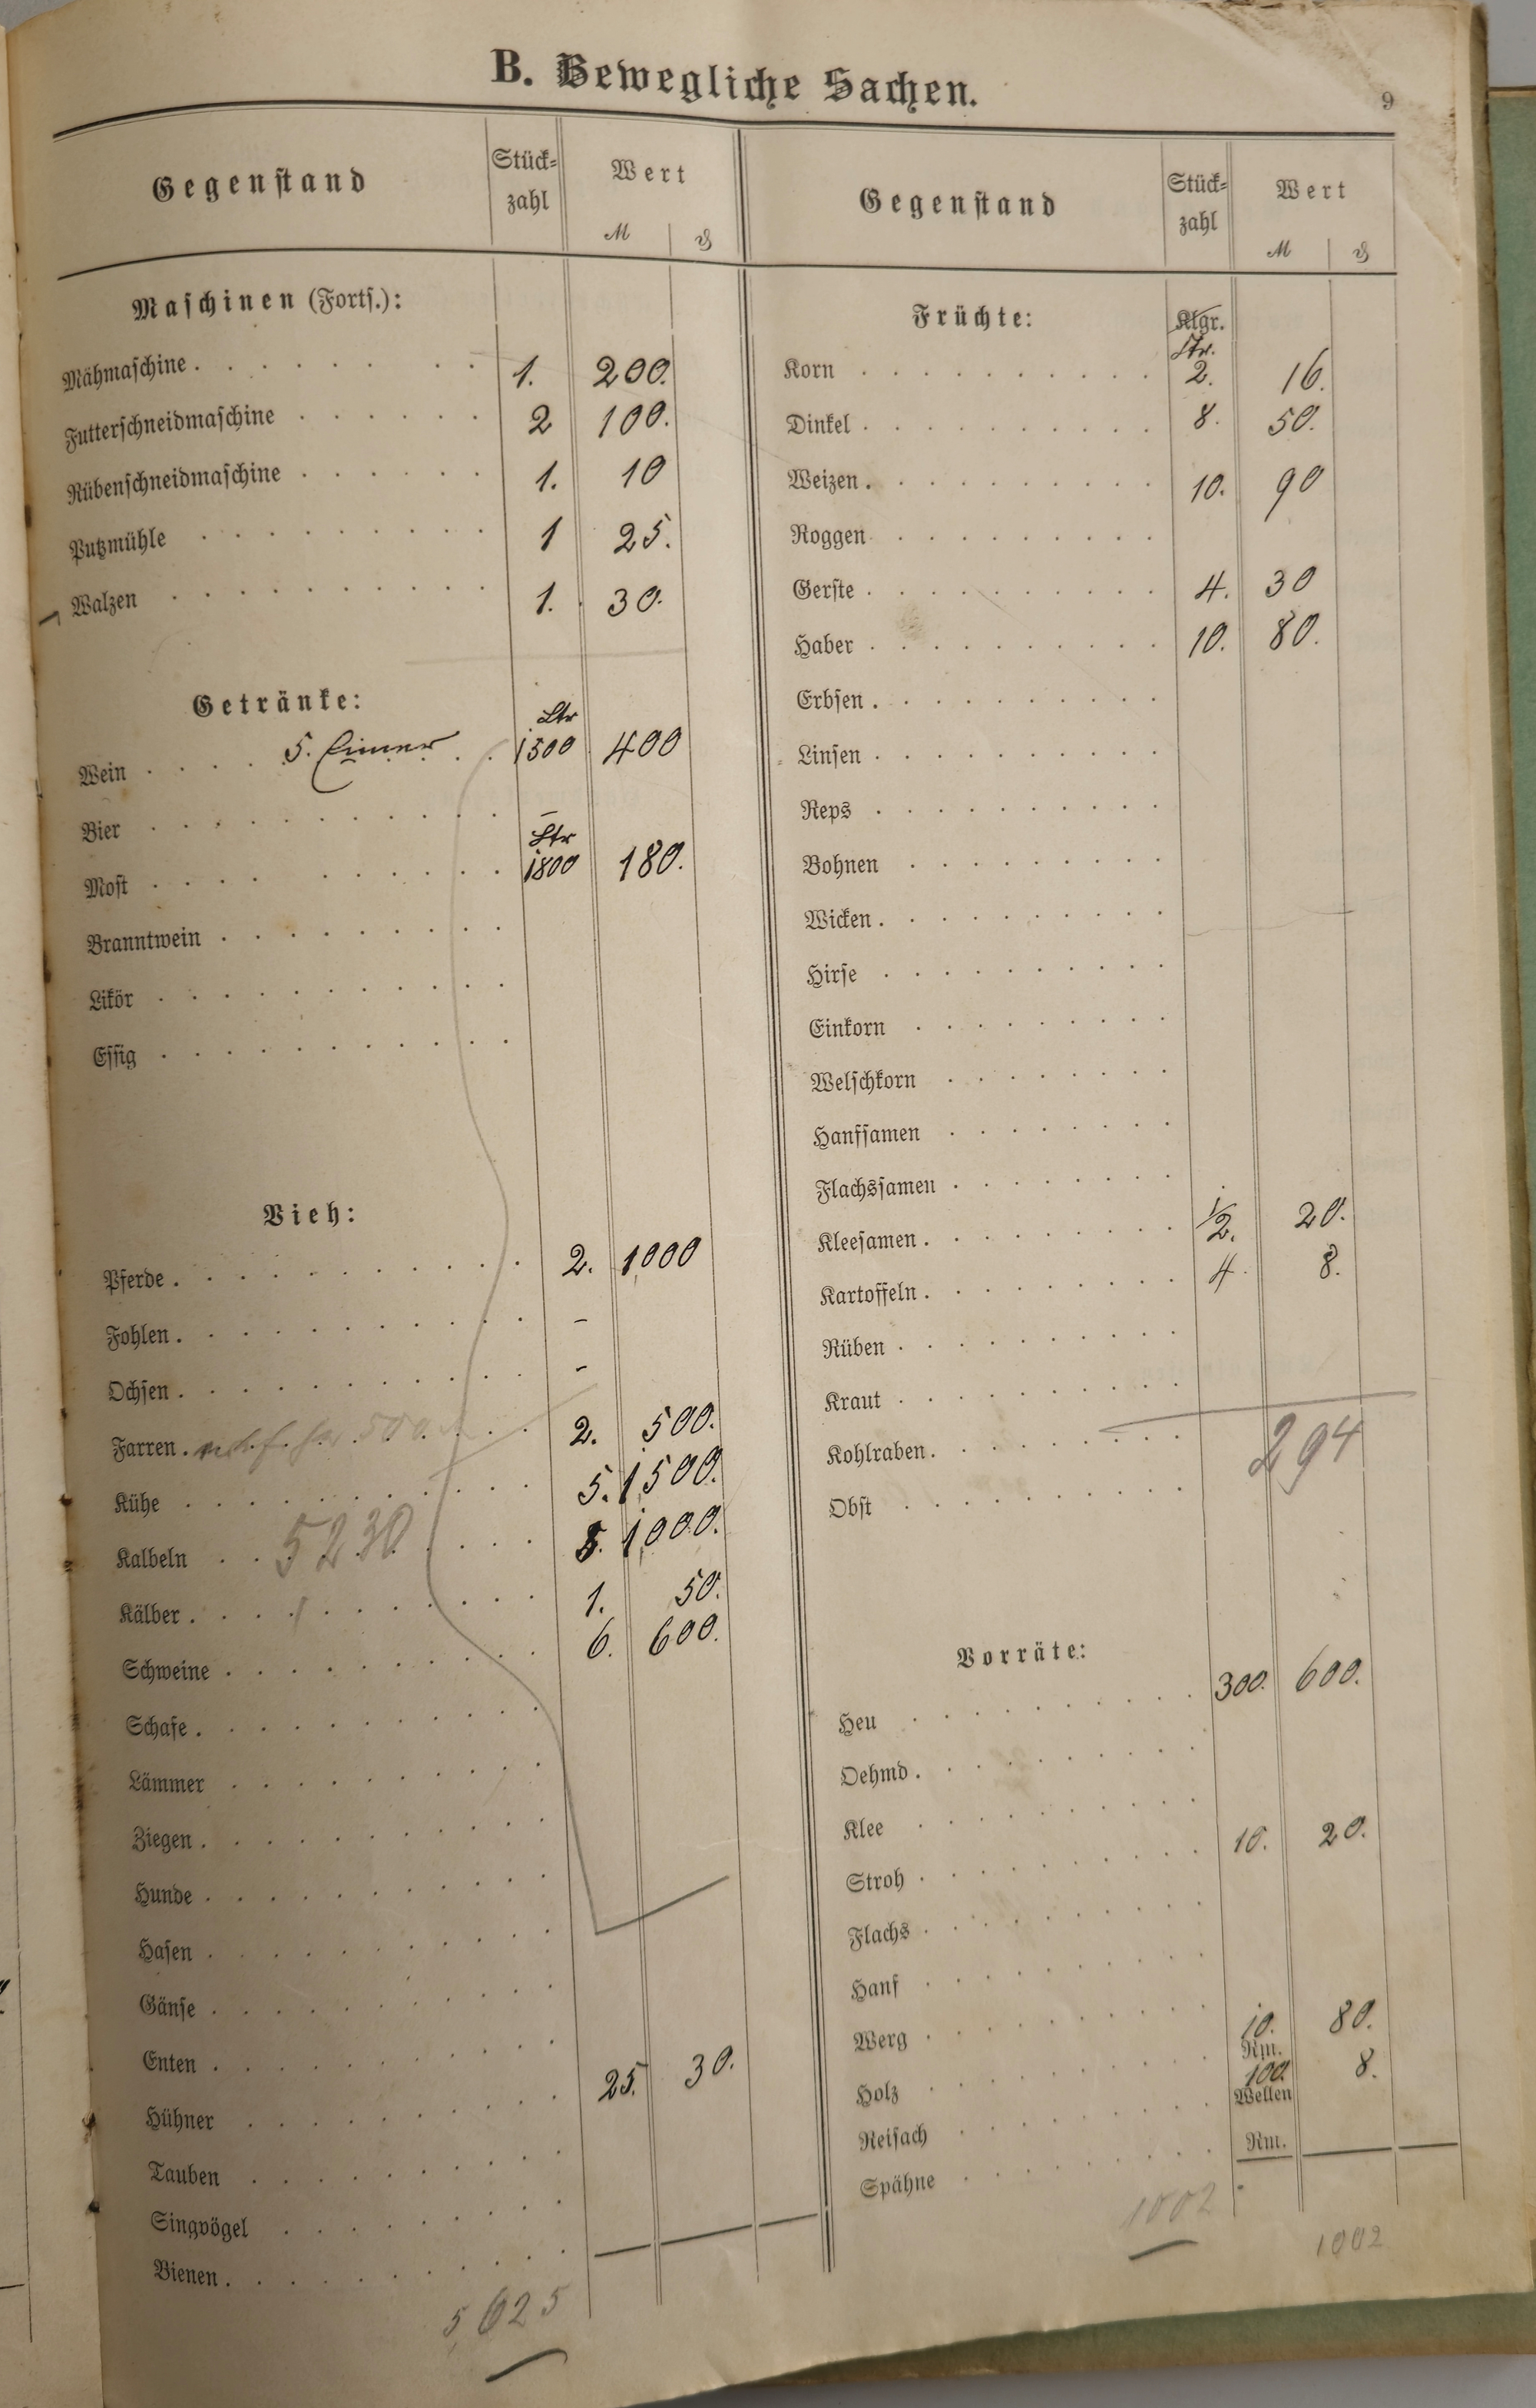 B. Bewegliche Sachen.
9
Gegenstand Stück-zahl Wert
M ₰
Maschinen (Forts.):
Mähmaschine . . . . . . . 1. 200.
Futterschneidmaschine . . . . . . 2 100.
Rübenschneidmaschine . . . . . . 1. 10
Putzmühle . . . . . . . . . 1 25.
Walzen . . . . . . . . . . 1. 30.
Getränke:
Ltr
Wein . . . . 5. Eimer . . 1500 400
Bier . . . . . . . . . . –
Ltr
Most . . . . . . . . . . 1800 180.
Branntwein . . . . . . . . .
Likör . . . . . . . . . . .
Essig . . . . . . . . . . .
Vieh:
Pferde . . . . . . . . . . . 2. 1000
Fohlen . . . . . . . . . . . -
Ochsen . . . . . . . . . . . -
Farren . 500 . . . 2. 500.
Kühe . . . . . . . . . . . 5. 1500.
Kalbeln . . 5230 . . . . 5. 1000.
Kälber . . . . . . . . . . . 1. 50.
Schweine . . . . . . . . . . 6. 600.
Schafe . . . . . . . . . . .
Lämmer . . . . . . . . . .
Ziegen . . . . . . . . . . .
Hunde . . . . . . . . . . .
Hasen . . . . . . . . . . .
Gänse . . . . . . . . . . .
Enten . . . . . . . . . . .
Hühner . . . . . . . . . . 25. 30.
Tauben . . . . . . . . . .
Singvögel . . . . . . . . .
Bienen . . . . . . . . . . .
5025
Gegenstand Stück-zahl Wert
M ₰
Früchte: Klgr.
Ztr.
Korn . . . . . . . . . . 2. 16.
Dinkel . . . . . . . . . . 8. 50.
Weizen . . . . . . . . . . 10. 90
Roggen . . . . . . . . . .
Gerste . . . . . . . . . . 4. 30
Haber . . . . . . . . . . 10. 80.
Erbsen . . . . . . . . . .
Linsen . . . . . . . . . .
Reps . . . . . . . . . .
Bohnen . . . . . . . . .
Wicken . . . . . . . . . .
Hirse . . . . . . . . . .
Einkorn . . . . . . . . .
Welschkorn . . . . . . . .
Hanfsamen . . . . . . . .
Flachssamen . . . . . . . .
Kleesamen . . . . . . . . . 1/2. 20.
Kartoffeln . . . . . . . . . 4. 8.
Rüben . . . . . . . . . .
Kraut . . . . . . . . . .
Kohlraben . . . . . . . . . 294
Obst . . . . . . . . . .
Vorräte:
Heu . . . . . . . . . . 300. 600.
Oehmd . . . . . . . . . .
Klee . . . . . . . . . .
Stroh . . . . . . . . . . 10. 20.
Flachs . . . . . . . . . .
Hanf . . . . . . . . . .
Werg . . . . . . . . . .
Holz . . . . . . . . . . 10. Rm. 80.
Reisach . . . . . . . . . 100. Wellen 8.
Spähne . . . . . . . . . Rm.
1002
1002